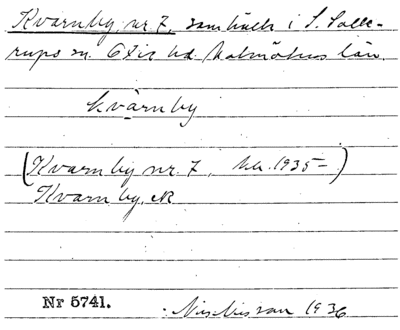 Kvarnby nr. 7, samhälle i S. Salle-
rups sn. Oxie hd. Malmöhus län.
kvarnby
(Kvarnby nr. 7, 1935–)
Kvarnby, ek
Nr 5741.
1936